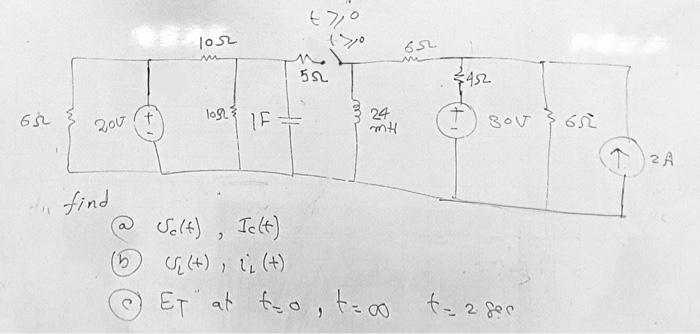 t ⩾ 0
t ⩾ 0
10Ω
5Ω
6Ω
4Ω
6Ω
20V
+
-
10Ω
1F
24
mH
+
-
30V
6Ω
2A
find
(a) Vc(t) , Ic(t)
(b) VL(t) , iL(t)
(c) ET at t=0 , t=∞ t=2 sec